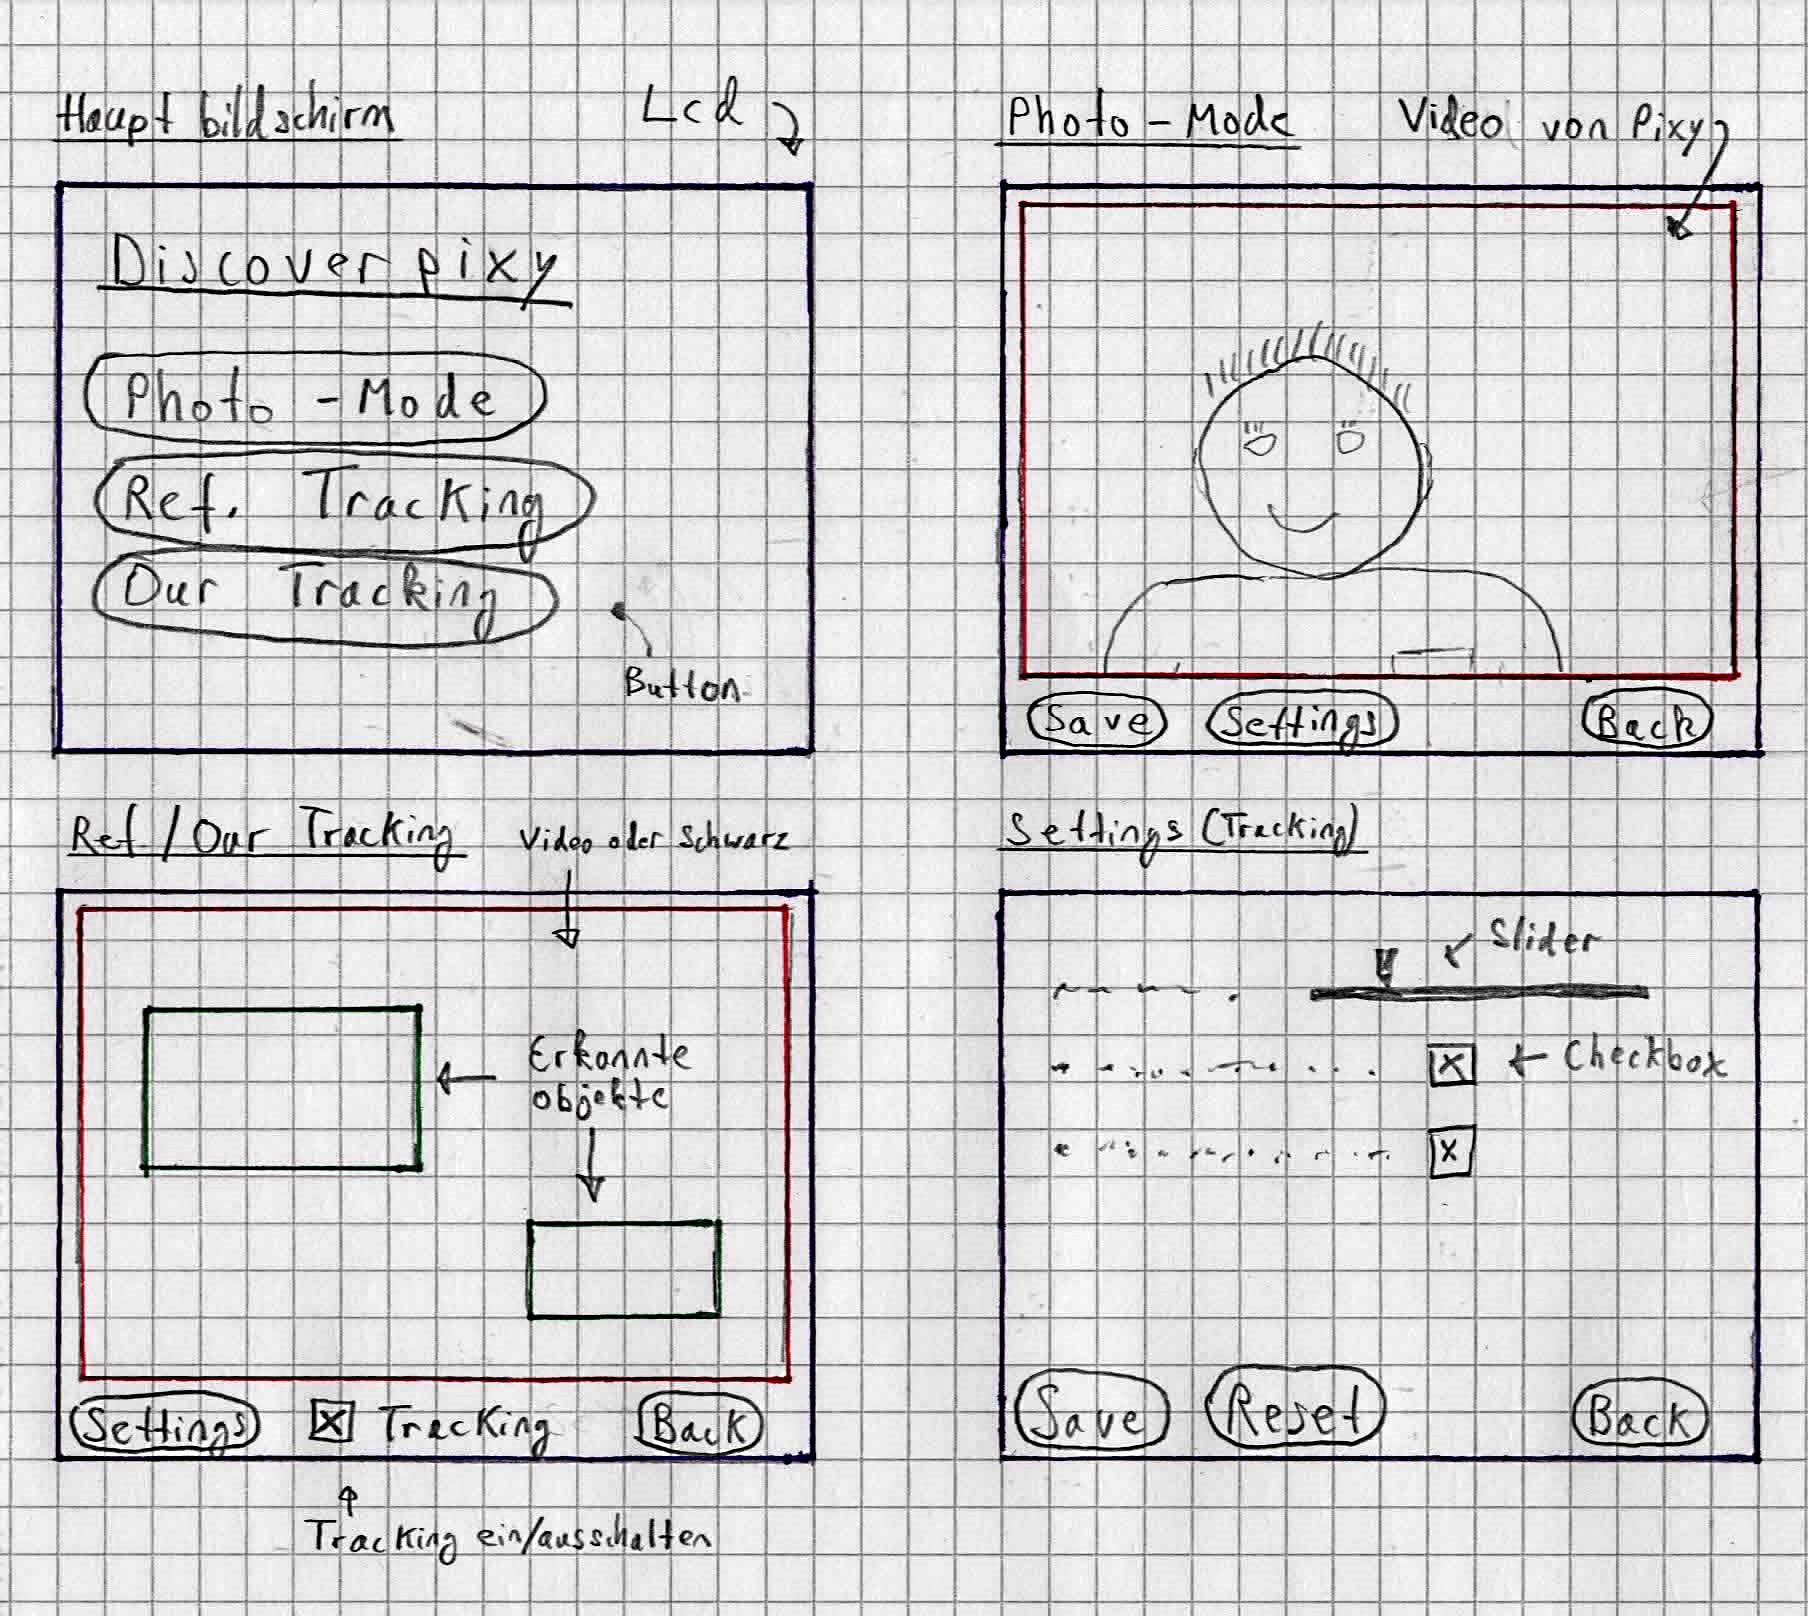 Hauptbildschirm
Lcd
Discoverpixy
Photo-Mode
Ref. Tracking
Our Tracking
Button
Photo-Mode
Video von Pixy
Save
Settings
Back
Ref/Our Tracking
Video oder Schwarz
Erkannte
objekte
Settings
Tracking
Back
Tracking ein/ausschalten
Settings (Tracking)
Slider
Checkbox
Save
Reset
Back